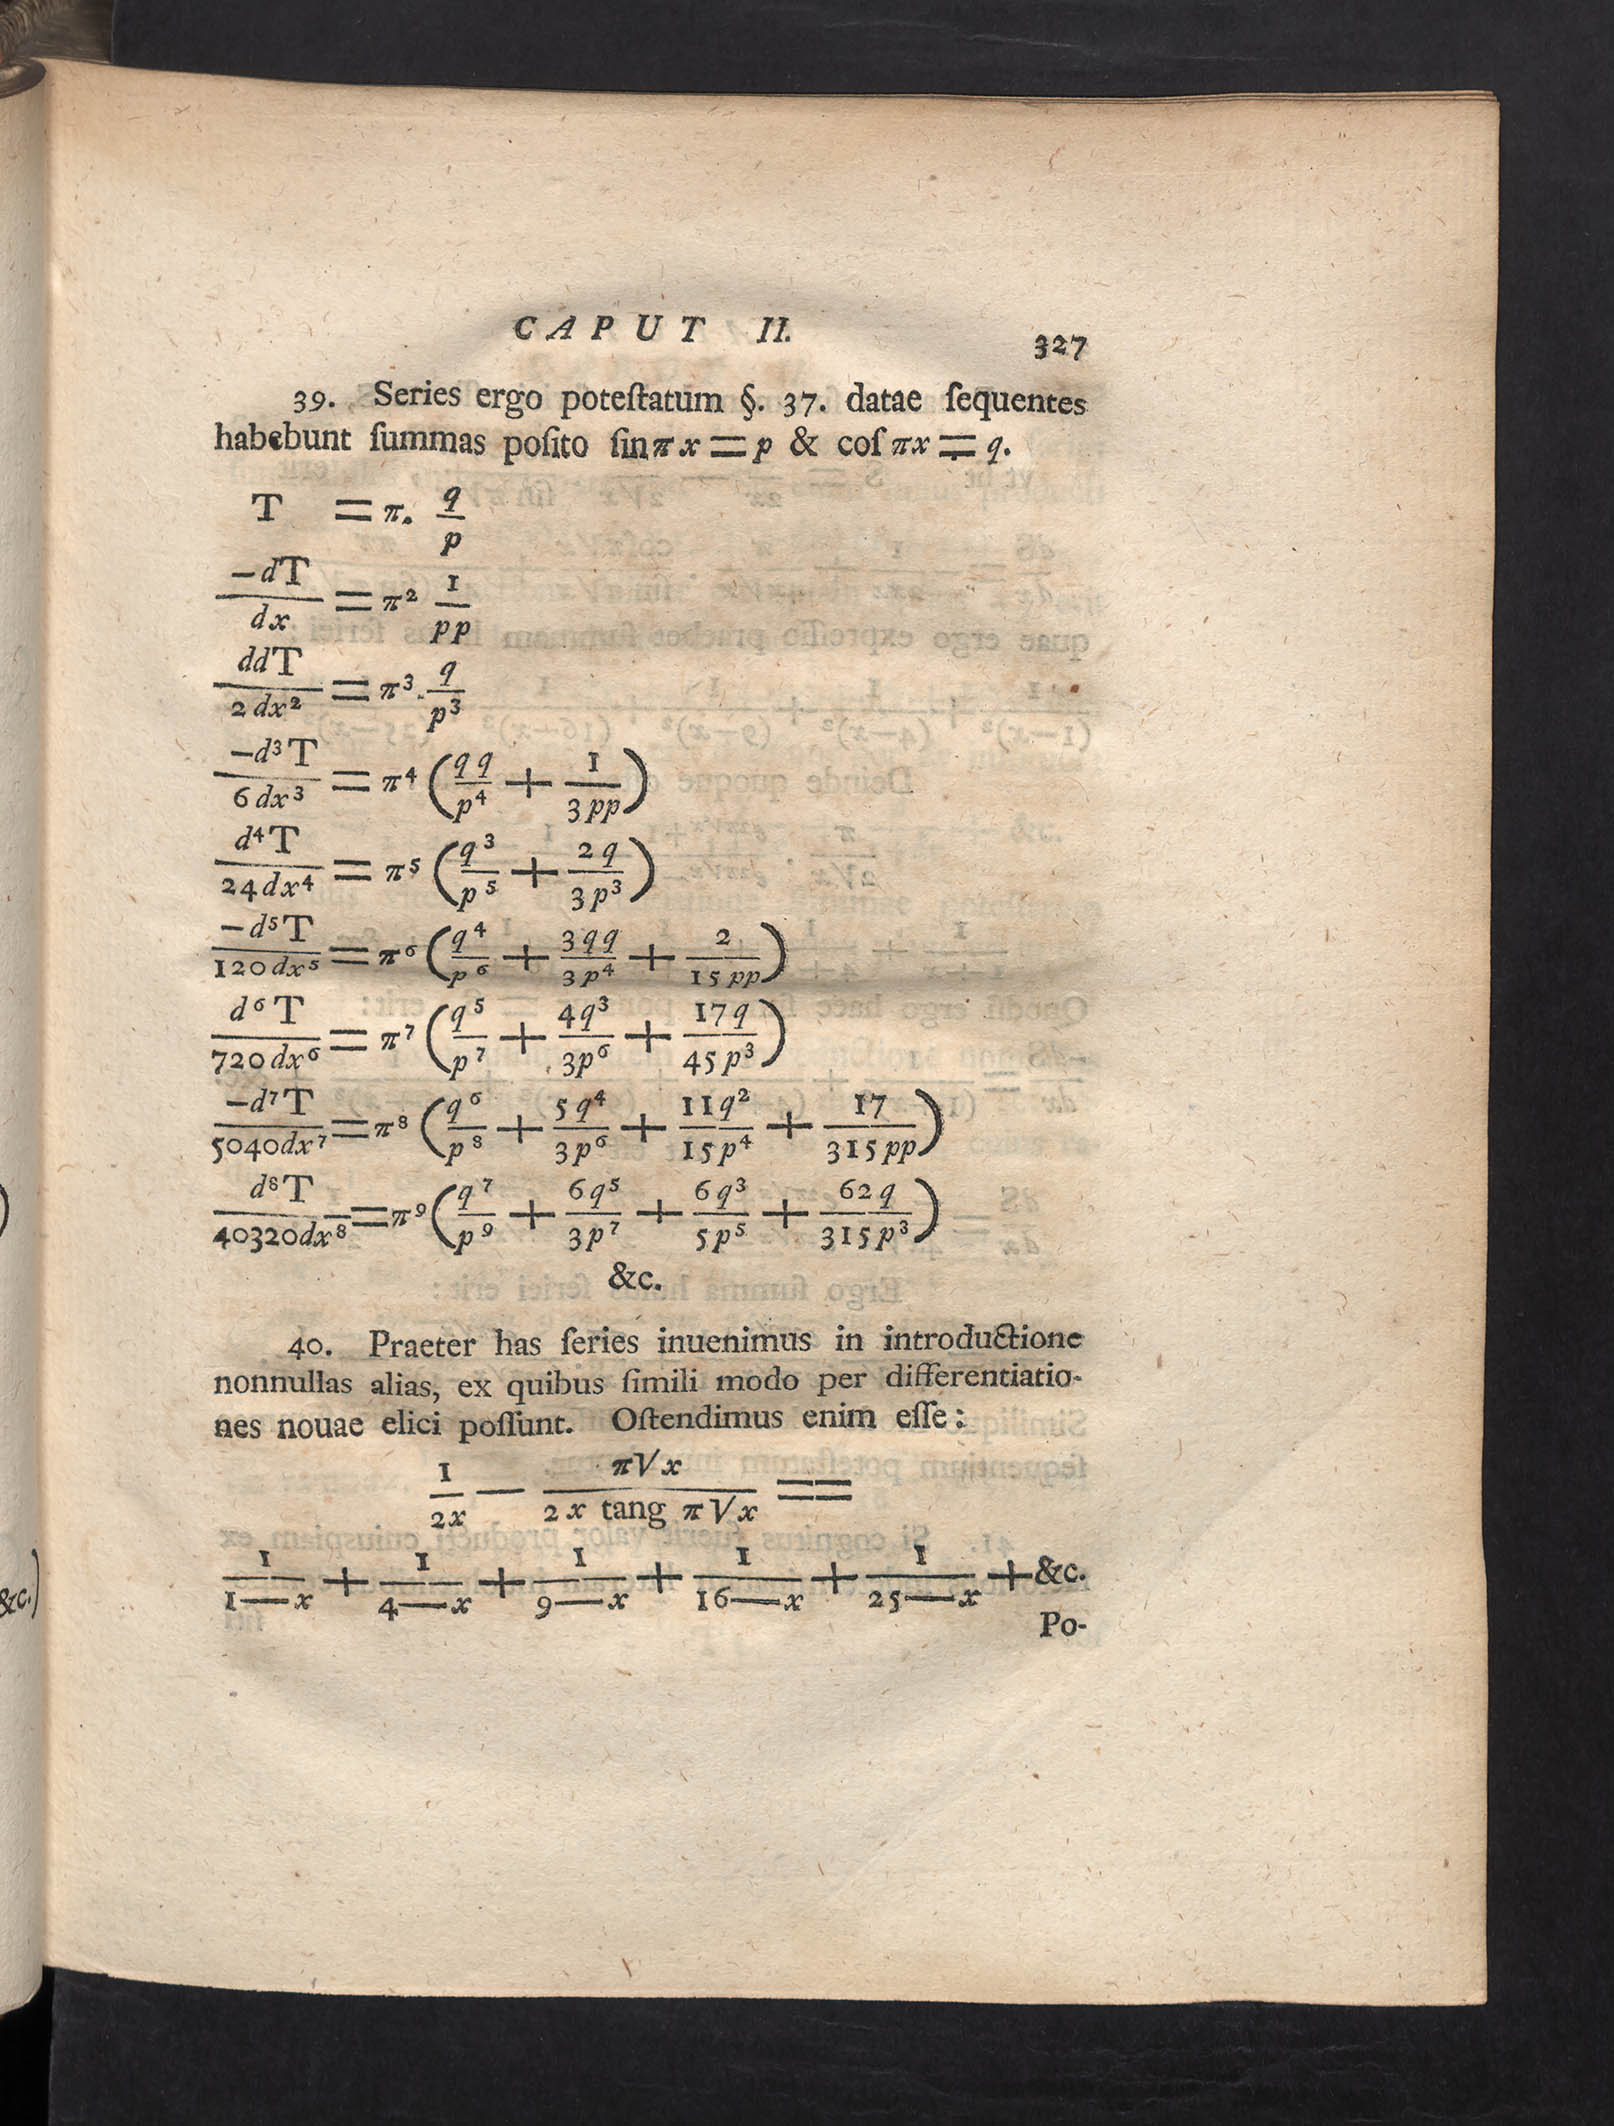 CAPUT II.
327
39. Series ergo poteſtatum §. 37. datae ſequentes
habebunt ſummas poſito ſin π x = p & coſ πx = q.
T = π. q/p
−dT/dx = π² 1/pp
ddT/2dx² = π³. q/p³
−d³T/6dx³ = π⁴ (qq/p⁴ + 1/3pp)
d⁴T/24dx⁴ = π⁵ (q³/p⁵ + 2q/3p³)
−d⁵T/120dx⁵ = π⁶ (q⁴/p⁶ + 3qq/3p⁴ + 2/15pp)
d⁶T/720dx⁶ = π⁷ (q⁵/p⁷ + 4q³/3p⁶ + 17q/45p³)
−d⁷T/5040dx⁷ = π⁸ (q⁶/p⁸ + 5q⁴/3p⁶ + 11q²/15p⁴ + 17/315pp)
d⁸T/40320dx⁸ = π⁹ (q⁷/p⁹ + 6q⁵/3p⁷ + 6q³/5p⁵ + 62q/315p³)
&c.
40. Praeter has ſeries inuenimus in introductione
nonnullas alias, ex quibus ſimili modo per differentiatio-
nes nouae elici poſſunt. Oſtendimus enim eſſe:
1/2x − π√x/2x tang π√x ==
1/1−x + 1/4−x + 1/9−x + 1/16−x + 1/25−x + &c.
Po-
&c.)